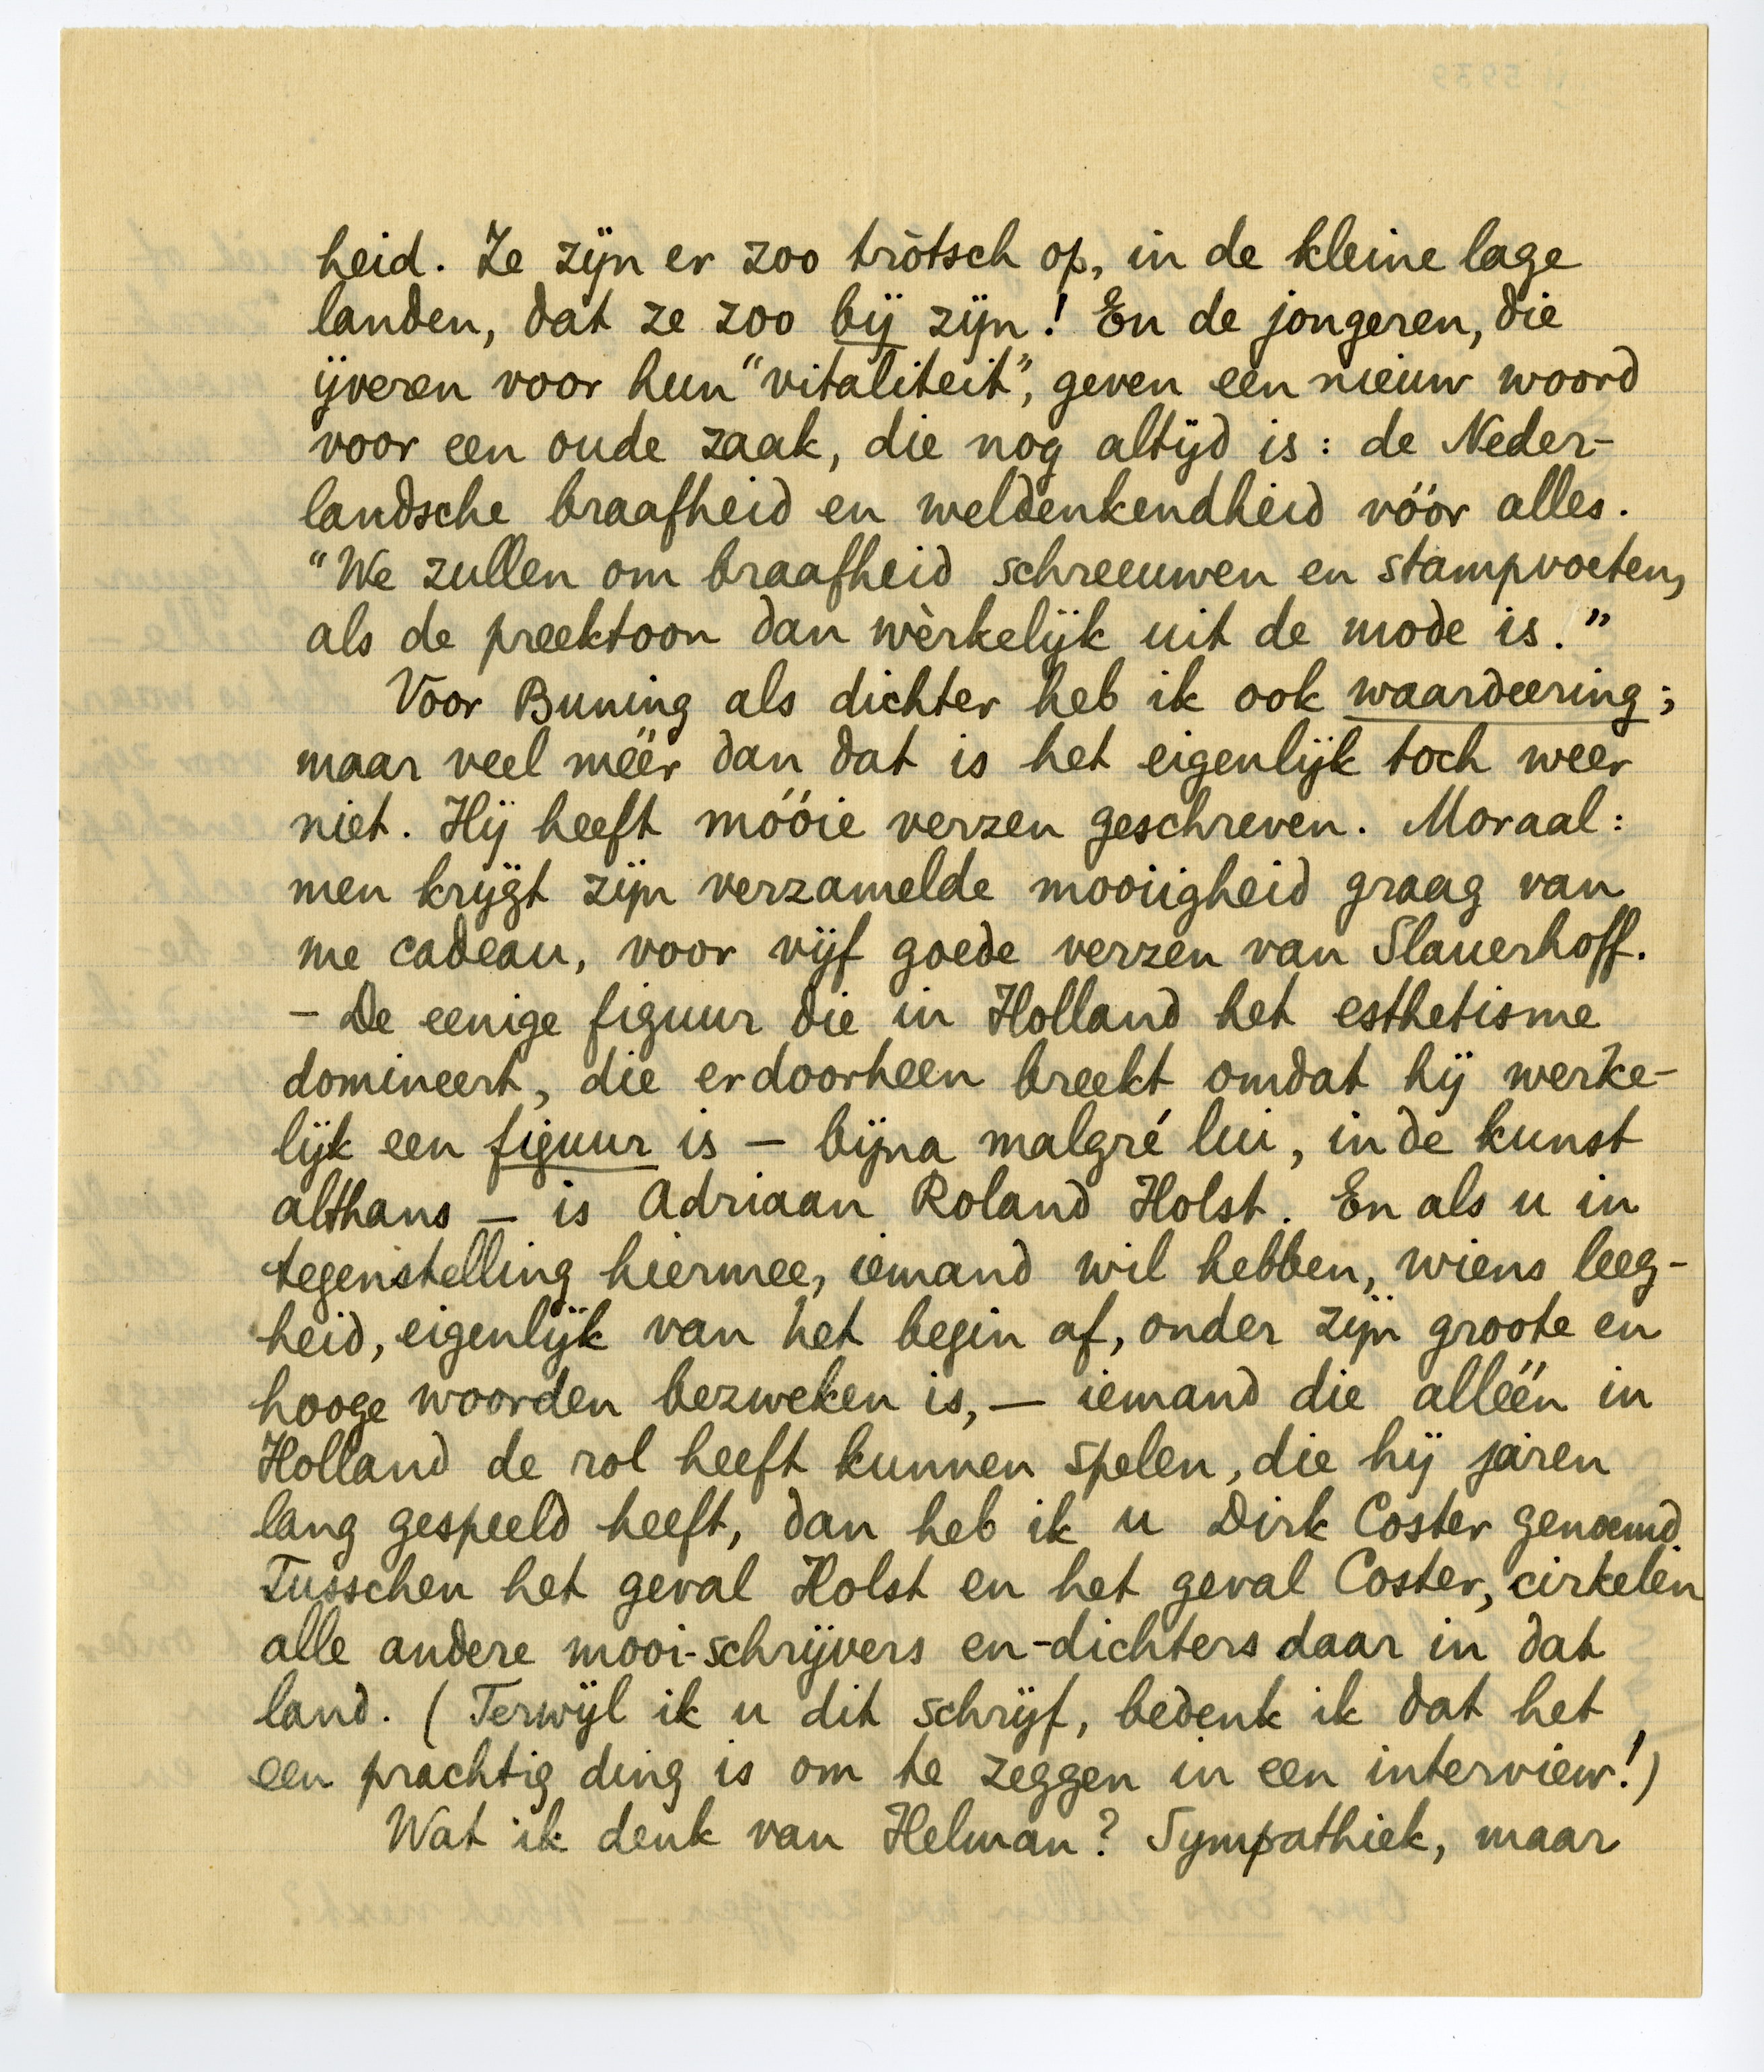 heid. Ze zijn er zoo tròtsch op, in de kleine lage
landen, dat ze zoo bij zijn! En de jongeren, die
ijveren voor hun "vitaliteit", geven een nieuw woord
voor een oude zaak, die nog altijd is: de Neder-
landsche braafheid en weldenkendheid vóór alles.
"We zullen om braafheid schreeuwen en stampvoeten,
als de preektoon dan wèrkelijk uit de mode is."
Voor Buning als dichter heb ik ook waardeering;
maar veel méér dan dat is het eigenlijk toch weer
niet. Hij heeft móóie verzen geschreven. Moraal:
men krijgt zijn verzamelde mooiigheid graag van
me cadeau, voor vijf goede verzen van Slauerhoff.
- De eenige figuur die in Holland het esthetisme
domineert, die erdoorheen breekt omdat hij werke-
lijk een figuur is — bijna malgré lui, in de kunst
althans — is Adriaan Roland Holst. En als u in
tegenstelling hiermee, iemand wil hebben, wiens leeg-
heid, eigenlijk van het begin af, onder zijn groote en
hooge woorden bezweken is, — iemand die alléén in
Holland de rol heeft kunnen spelen, die hij jaren
lang gespeeld heeft, dan heb ik u Dirk Coster genoemd.
Tusschen het geval Holst en het geval Coster, cirkelen
alle andere mooi-schrijvers en -dichters daar in dat
land. (Terwijl ik u dit schrijf, bedenk ik dat het
een prachtig ding is om te zeggen in een interview!)
Wat ik denk van Helman? Sympathiek, maar